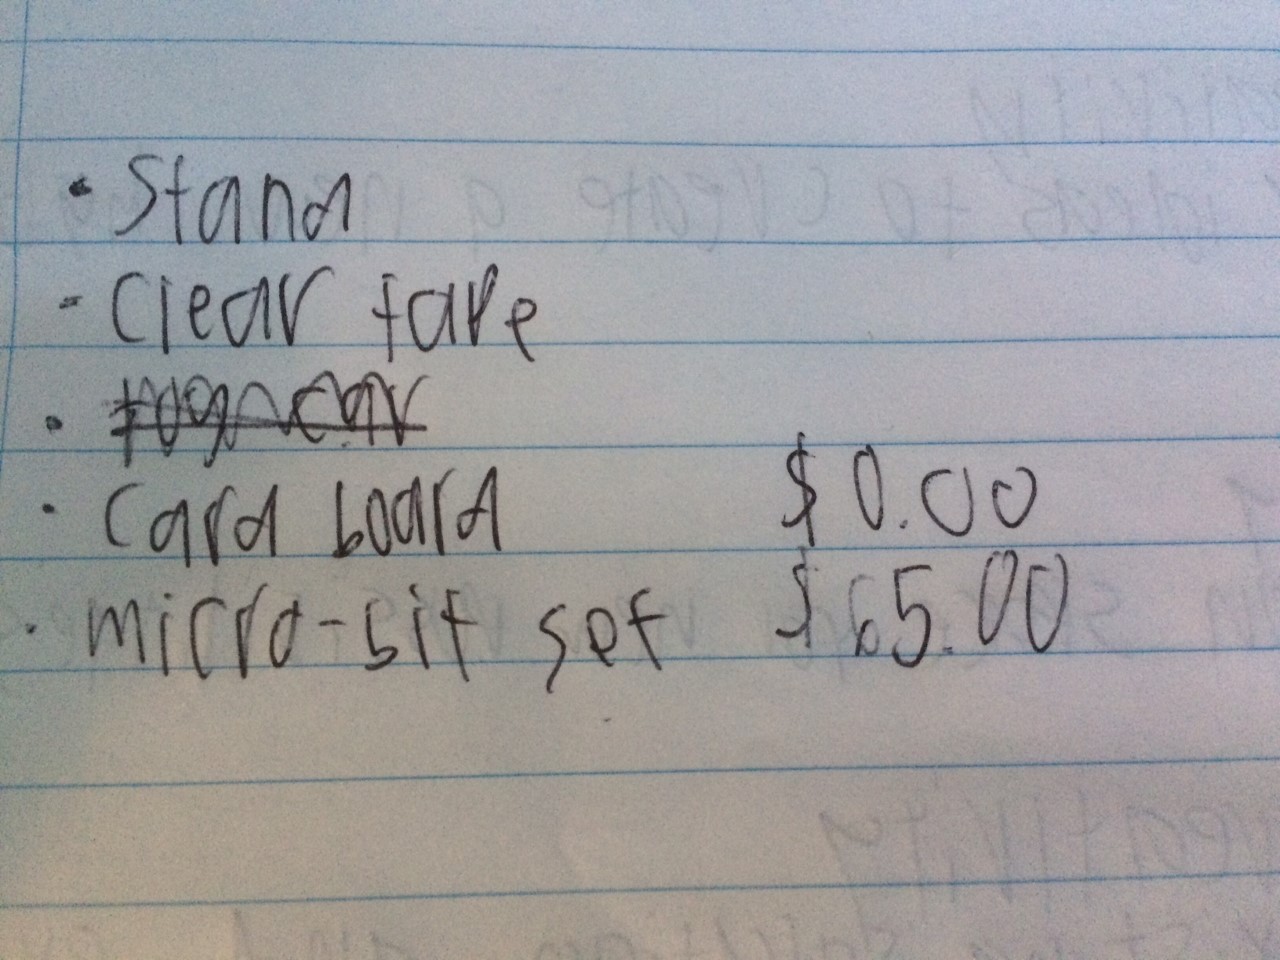 • Stand
- Clear tape
•
• Card board $0.00
• micro-bit set $65.00